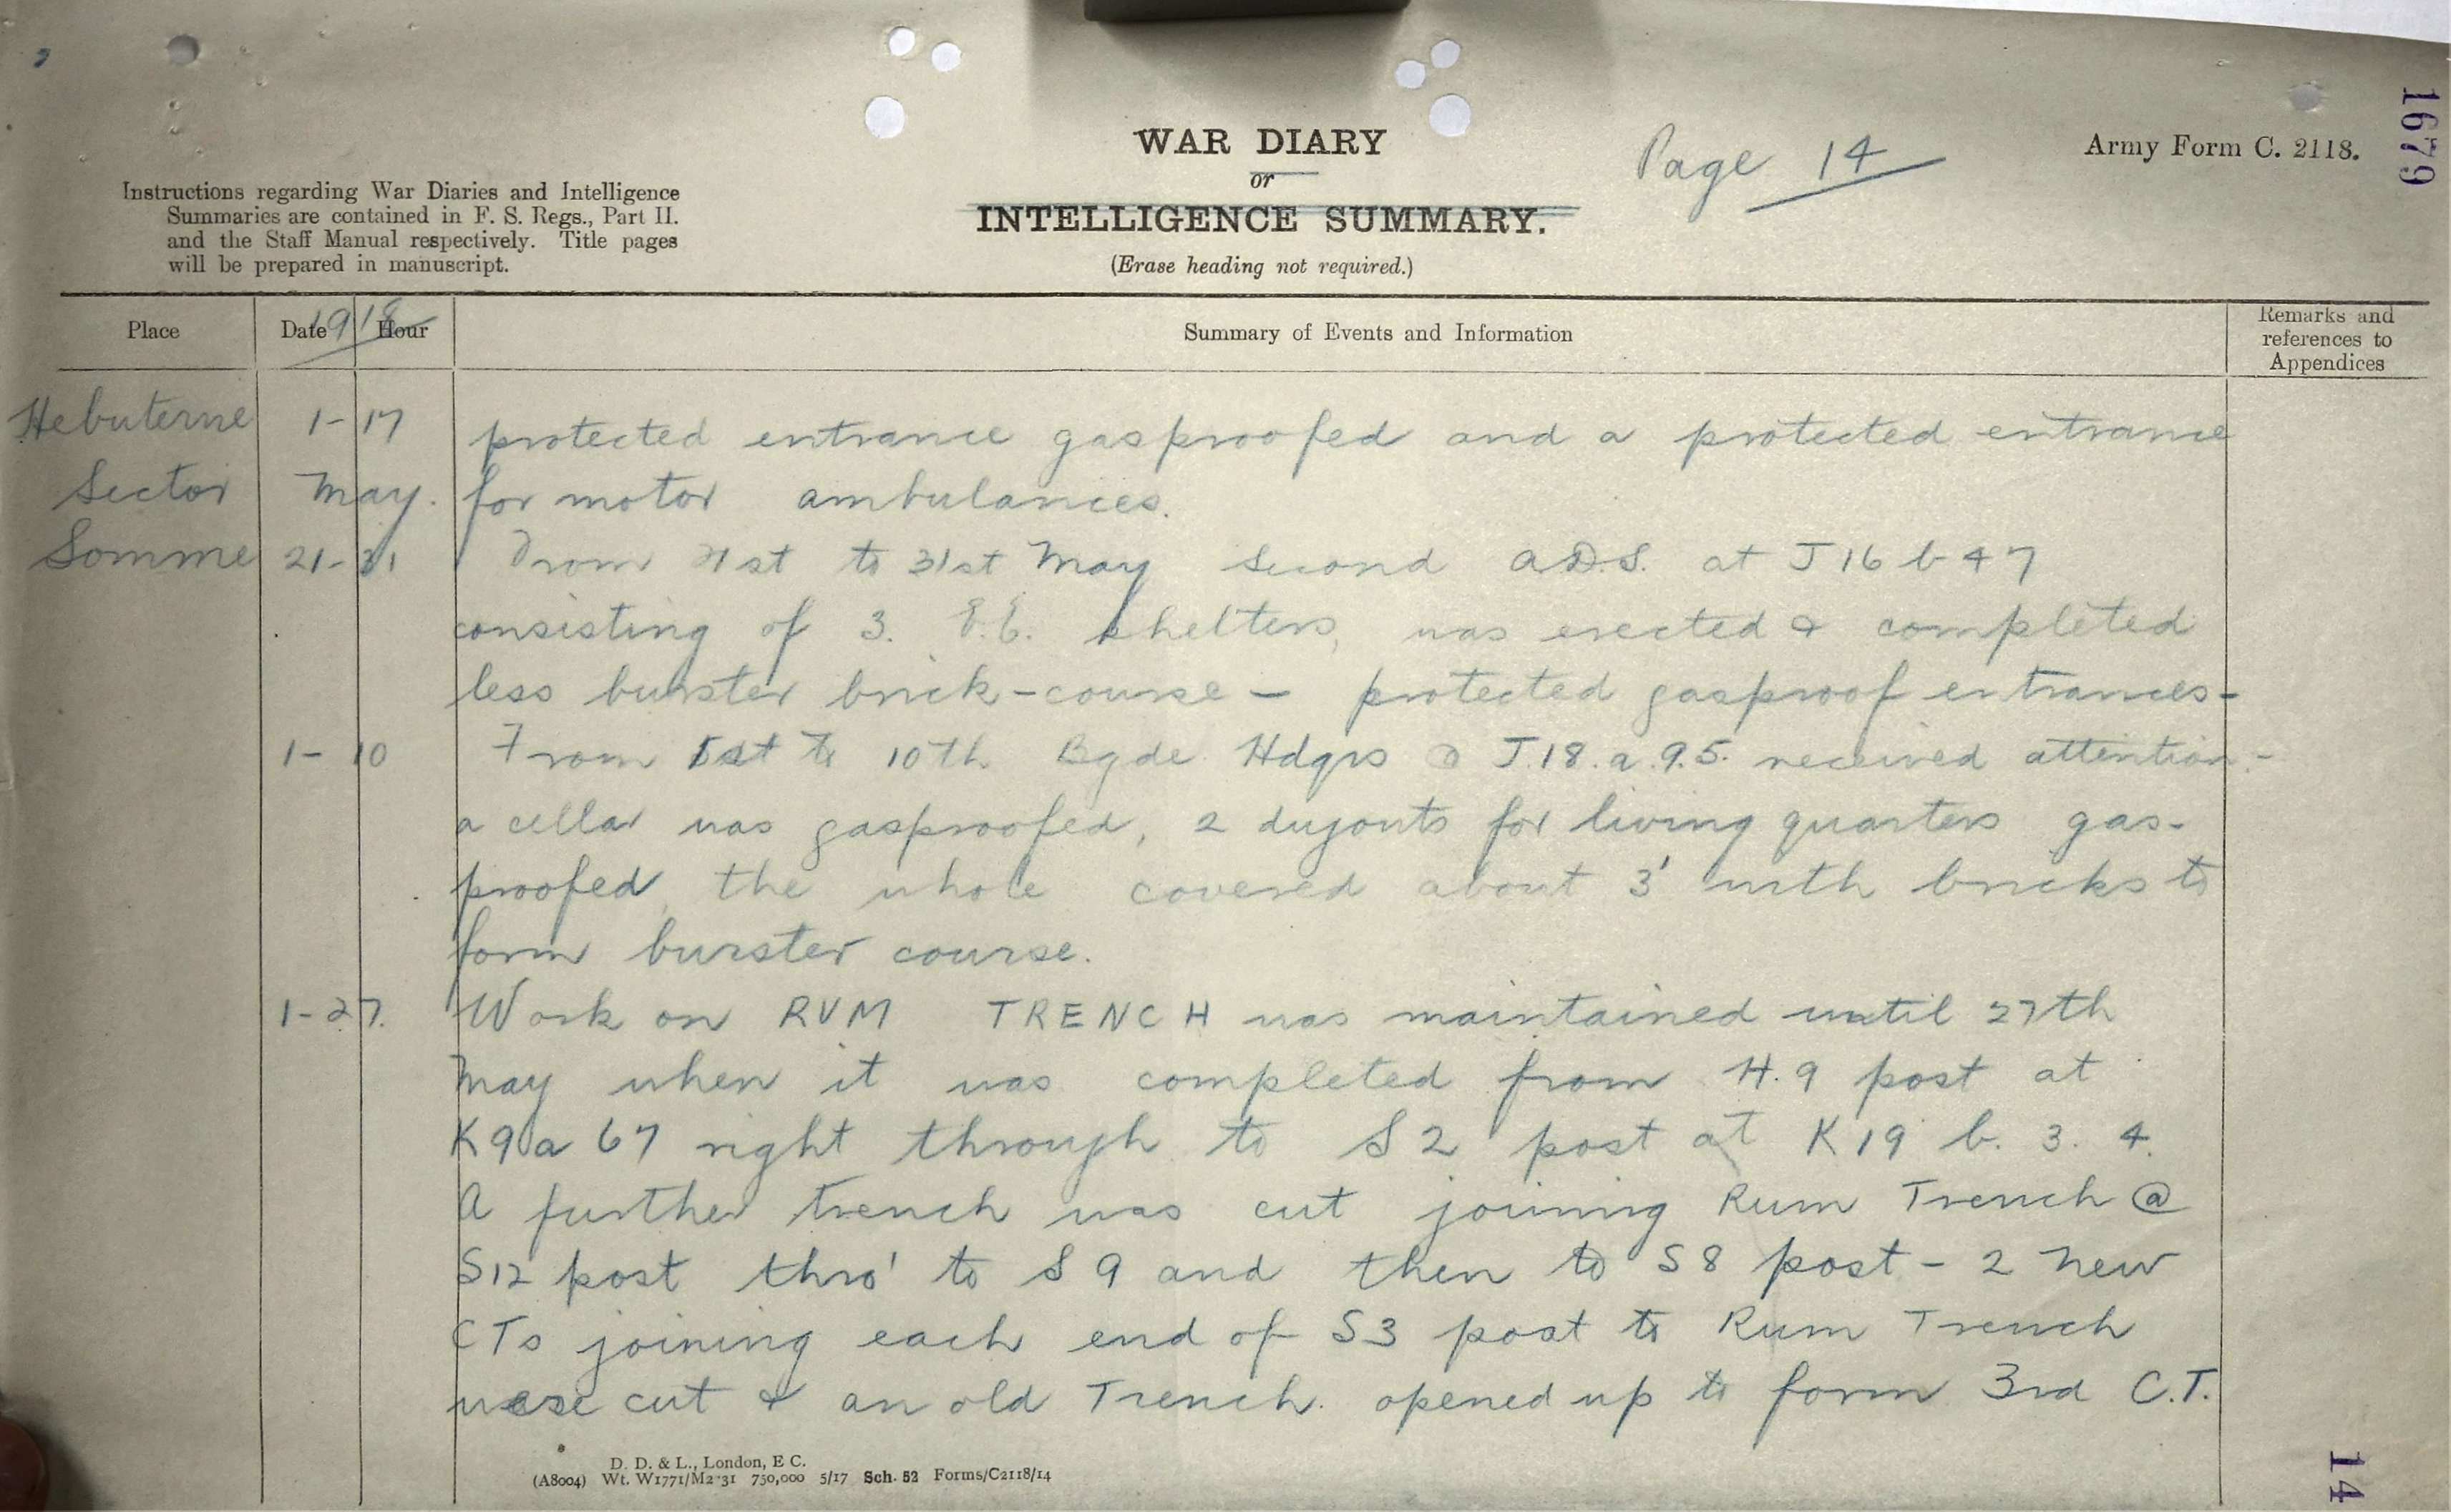 1679
WAR DIARY
or
INTELLIGENCE SUMMARY.
(Erase heading not required.)
Page 14
Army Form C. 2118.
Instructions regarding War Diaries and Intelligence
Summaries are contained in F. S. Regs., Part II.
and the Staff Manual respectively. Title pages
will be prepared in manuscript.
Place
Date 1918 Hour
Summary of Events and Information
Remarks and
references to
Appendices
Hebuterne 1-17 protected entrance gasproofed and a protected entrance
Sector May. for motor ambulances.
Somme 21-31 From 21st to 31st May second A.D.S. at J16 b 47
consisting of 3. E.E. shelters, was erected & completed
less burster brick-course - protected gasproof entrances-
1-10 From 1st to 10th Bgde Hdqrs @ J.18.a.9.5. received attention.-
a cellar was gasproofed, 2 dugouts for living quarters gas-
proofed, the whole covered about 3' with bricks to
form burster course.
1-27. Work on RUM TRENCH was maintained until 27th
May when it was completed from H.9 post at
K9a 67 right through to S2 post at K19 b. 3. 4.
A further trench was cut joining Rum Trench @
S12 post thro' to S9 and then to S8 post - 2 new
CTs joining each end of S3 post to Rum Trench
were cut & an old Trench. opened up to form 3rd C.T.
D. D. & L., London, E C.
(A8004) Wt. W1771/M2 31 750,000 5/17 Sch. 52 Forms/C2118/14
14